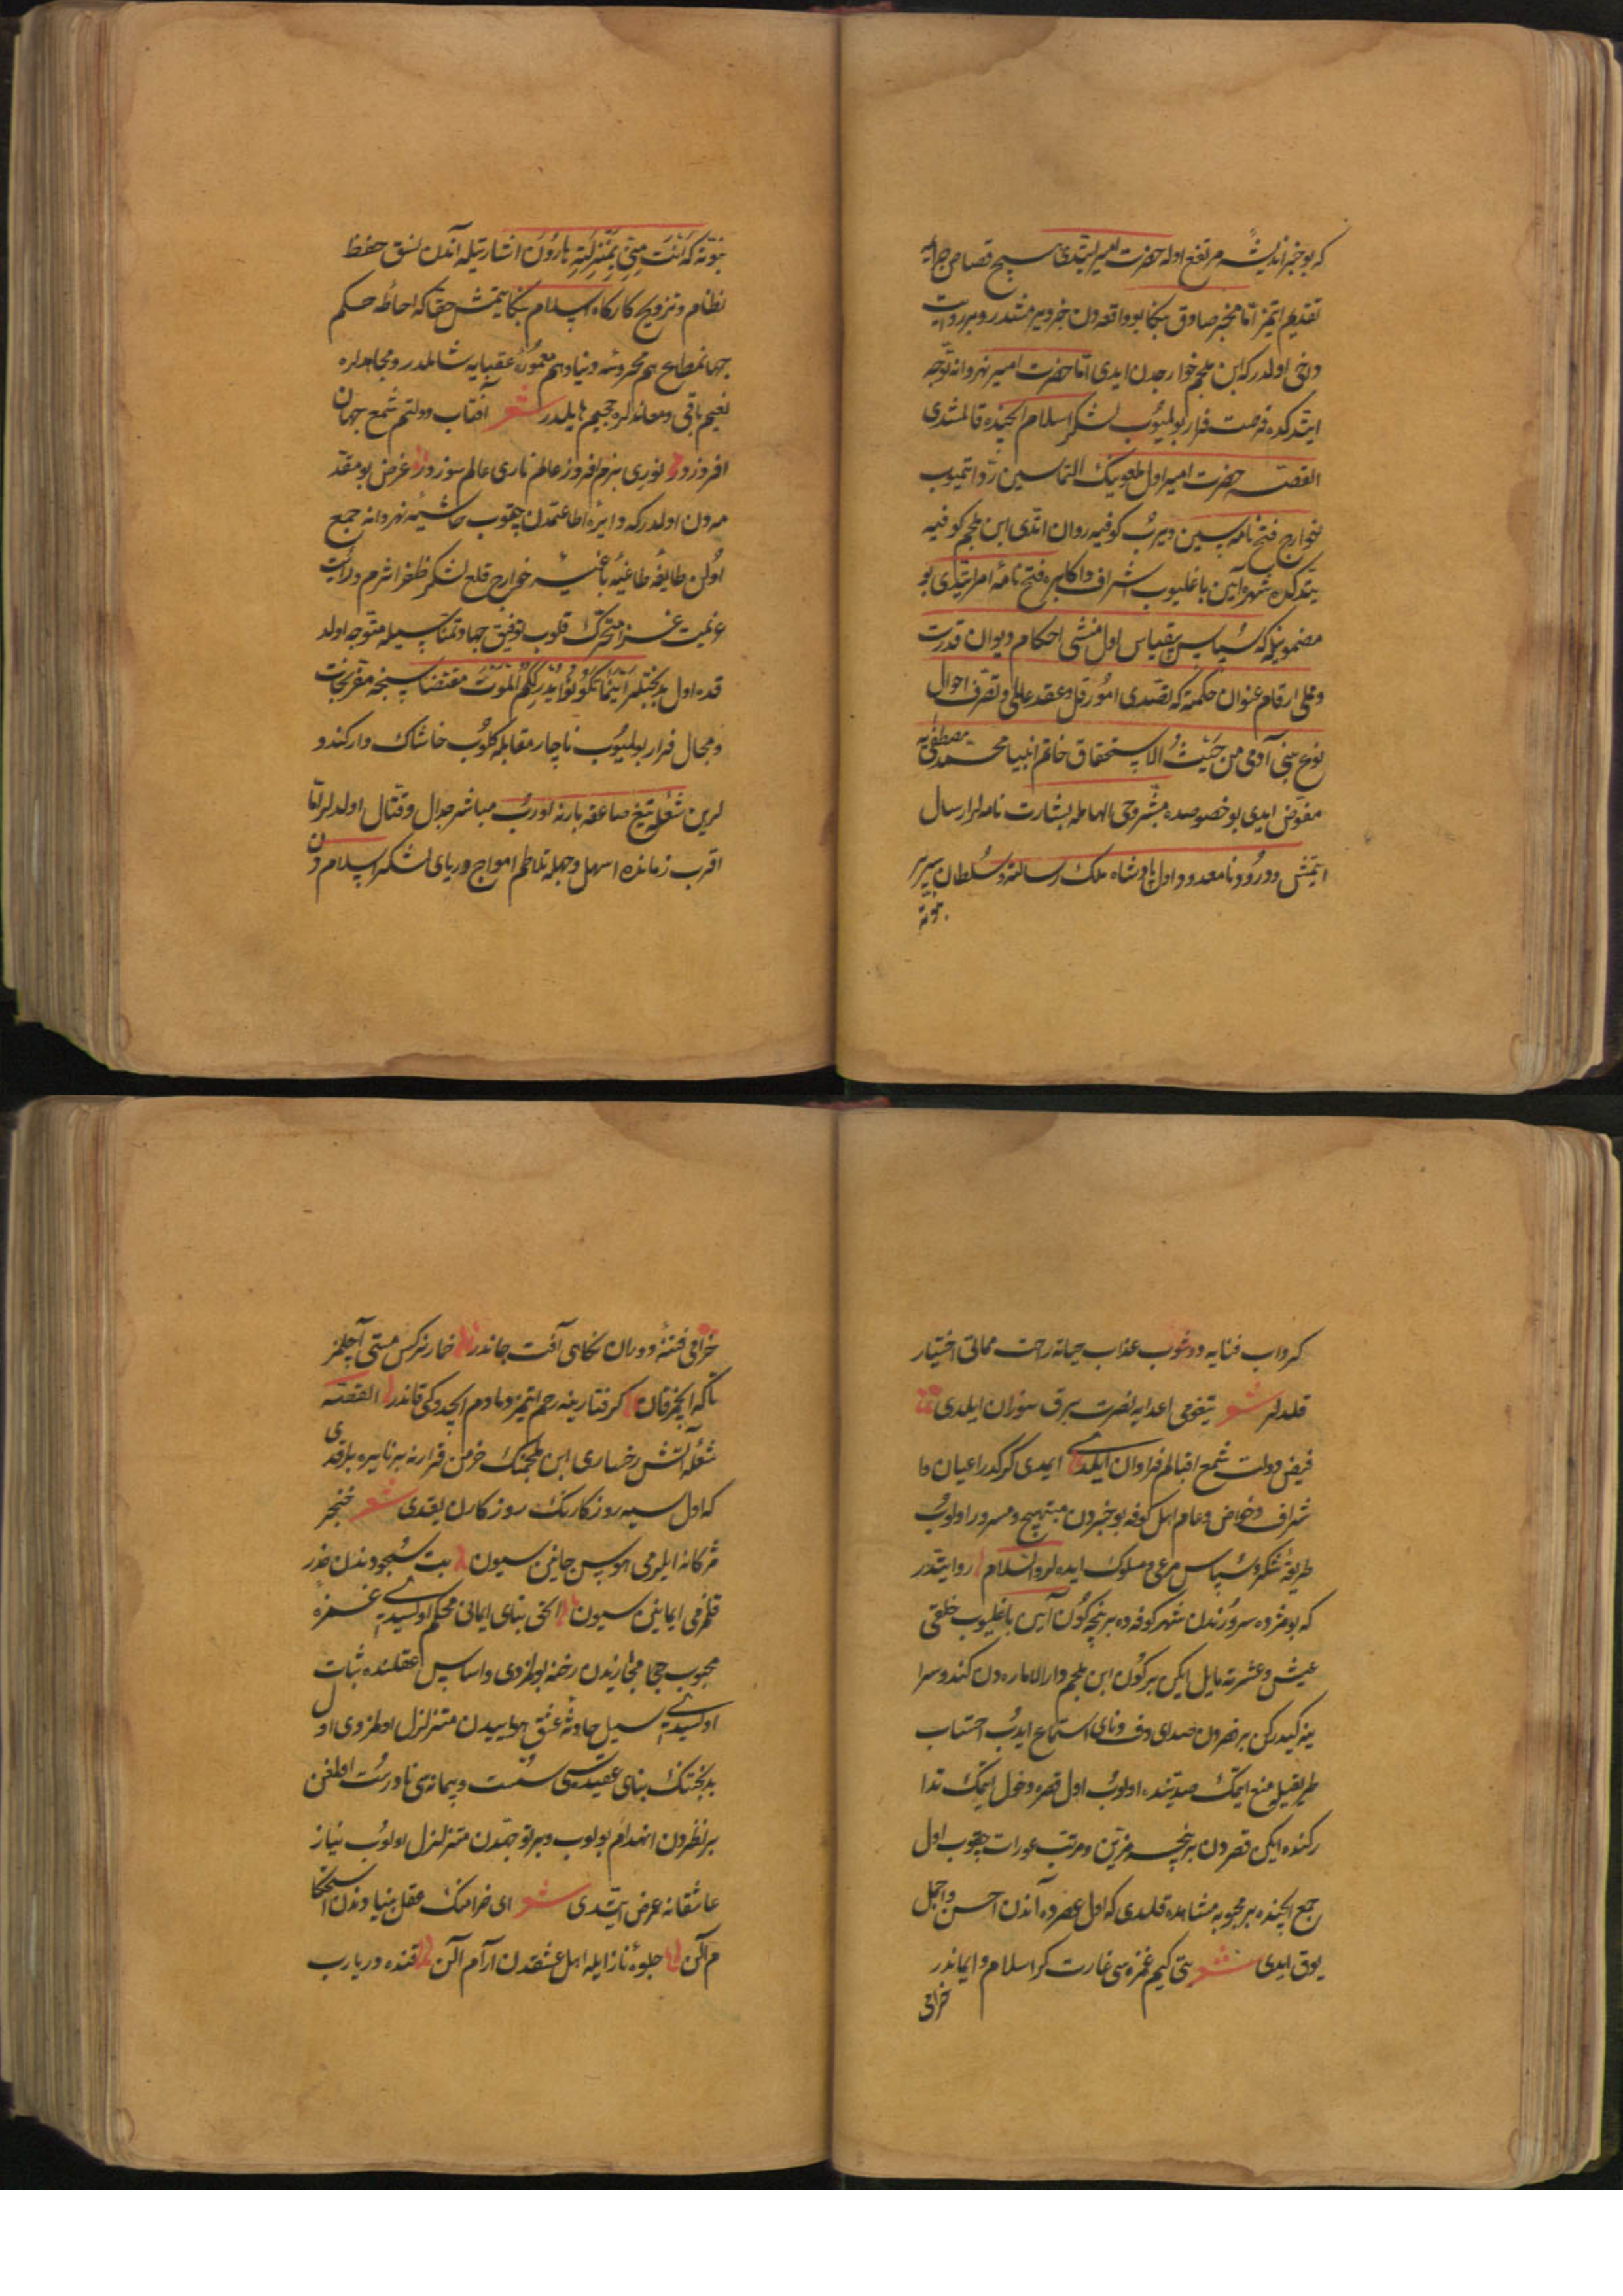 که بو خبر اندیشه مرتفع اوله حضرت امیر ایتدی سبح قصاص جرایمه
تقدیم ایتمز اما مخبر صادق بنکا بو واقعه دن خبر ویرمشدر و بر روایت
داخی اولدر که ابن ملجم خوارجدن ایدی اما حضرت امیر نهروانه توجه
ایتدکده فرصت فرار بولمیوب لشکر اسلام ایچنده قالمشدی
القصه حضرت امیر اول ملعونیک التماسین رد ایتمیوب
خوارج فتح نامه سین ویرب کوفیه روان اتدی ابن ملجم کوفیه
یتدکده شهره آیین باغلیوب اشراف و اکابره فتح نامۀ امر ایتدی بو
مضمونیله که سپاس بیقیاس اول منشی احکام دیوان قدرت
و مملی ارقام عنوان حکمته که تصدی امور حل و عقد عالمی و تصرف احوال
نوع بنی آدمی من حیث الاستحقاق خاتم انبیا محمد مصطفی یه
مفوض ایدی بو خصوصده مشروحی الهامله بشارت نامه لر ارسال
ایتمش و درود نامعدود اول پادشاه ملک رسالته و سلطان سریر
نبوته
نبوته که انت منی بمنزلته هارون اشارتیله آندن نسق حفظ
نظام و ترویج کارکاه اسلام بنکا یتمش حقا که احاطه حکم
جهانمطاعم هم محروسۀ دنیا و هم معمورۀ عقبایه شاملدر و مجاهدلره
نعیم باقی و معاندلره جحیم هایلدر شعر آفتاب دولتم شمع جهان
افروزدر نوری بزم افروز عالم ناری عالم سوزدر غرض بو مقد
مه دن اولدر که دایرۀ اطاعتمدن چقوب حاشیۀ نهروانه جمع
اولن طایفۀ طاغیۀ باغیه خوارج قلع لشکر ظفر اثرم و رایت
عزیمت غزا متحرک قلوب توفیق جهاد تمناسیله متوجه اولد
قده اول بدبختلر اینما تکونوا یدرککم الموت مقتضاسنجه مفر نجات
و مجال فرار بولمیوب ناچار مقابله کلوب خاشاک وار کندو
لرین شعلۀ تیغ صاعقه بارنه اورب مباشر جدال و قتال اولدلر اما
اقرب زمانده اسهل وجهله تلاطم امواج دریای لشکر اسلامدن
کرداب فنایه دوشوب عذاب حیاته راحت مماتی اختیار
قلدلر شعر تیغومی اعدایه نصرت برق سوزان ایلدی
فیض دولت شمع اقبالم فراوان ایلدی ایمدی کرکدر اعیان و ا
شراف و خواص و عام اهل کوفه بو خبردن مبتهج و مسرور اولوب
طریقۀ شکر و سپاس مرعی و مسلوک ایده لر والسلام روایتدر
که بو مژده سرورندن شهر کوفه ده بر نچه کون آیین باغلیوب خلقی
عیش و عشرته مایل ایکن بر کون ابن ملجم دارالاماره دن کندو سرا
ینه کیدرکن بر قصردن صدای دف و نای استماع ایدب احتساب
طریقیله منع ایتمک صددنده اولوب اول قصره دخول ایتمک تدا
رکنده ایکن قصردن بر نچه مزین و مرتب عورات چقوب اول
جمع ایچنده بر محبوبه مشاهده قلدی که اول عصرده آندن احسن و اجمل
یوق ایدی شعر بتی کیم غمزه سی غارت کر اسلام و ایماندر
خرامی
خرامی فتنۀ دوران نکاهی آفت جاندر خمار نرکس مستی آچلمز
تا که ایچمز قان کرفتارینه رحم ایتمز دمادم ایچدوکی قاندر القصه
شعلۀ آتش رخساری ابن ملجمنک خرمن قرارنه بر نایره براقدی
که اول سیه روزکارنک روزکارن یقدی شعر خنجر
مژکانه ایلرمی هوس جانین سیون بت سجودندن حذر
قلمزمی ایمانین سیون الحق بنای ایمانی محکم اولسیدی غمزۀ
محبوب حجا مجازندن رخنه بولمزدی و اساس عقلنده ثبات
اولسیدی سیل حادثۀ عشق هواسیدن متزلزل اولمزدی اول
بدبختنک بنای عقیده سی سست و پیمانه سی نادرست اولمغن
بر نظردن انهدام بولوب و بر توجهدن متزلزل اولوب نیاز
عاشقانه عرض ایتدی شعر ای خرامنک عقل بنیادندن استحکا
م آلن جلوۀ ناز ایله اهل عشقدن آرام آلن قنده در یارب